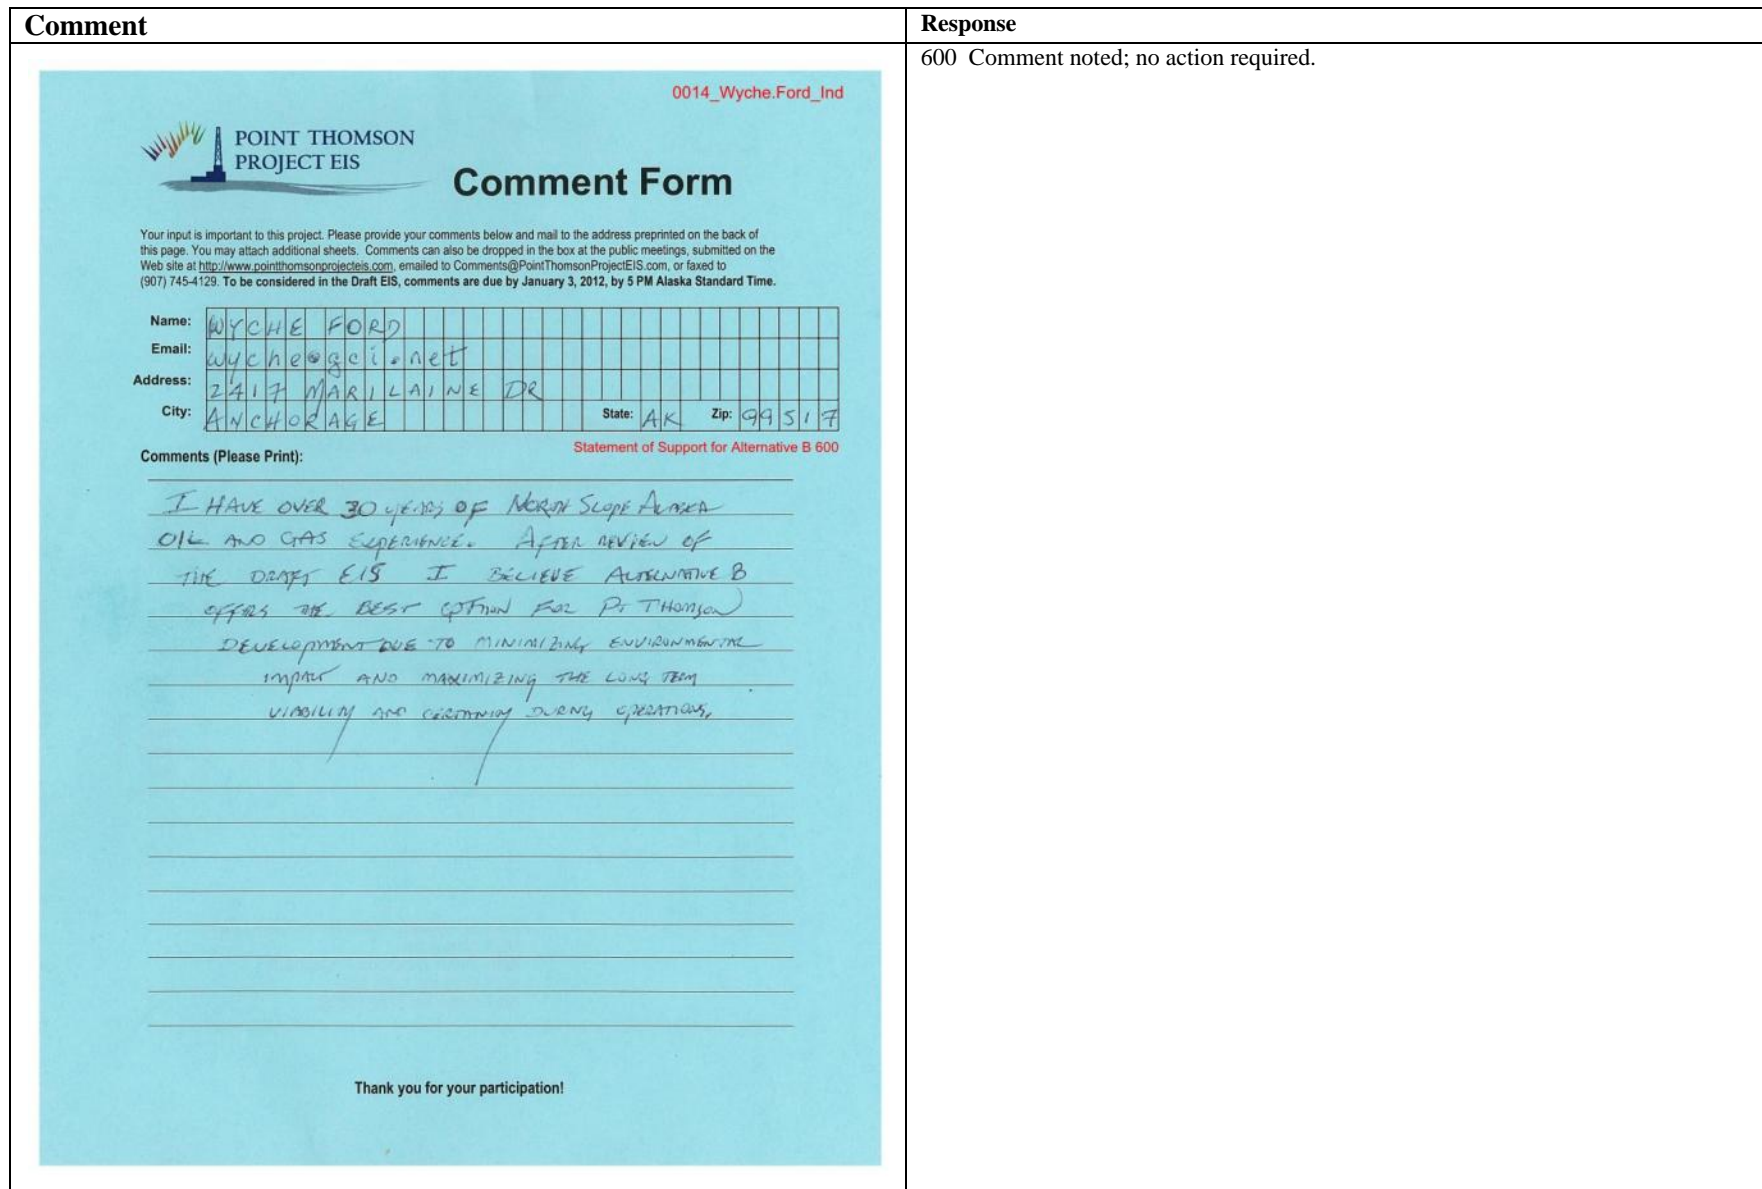 Comment
Response
600 Comment noted; no action required.
0014_Wyche.Ford_Ind
POINT THOMSON
PROJECT EIS
Comment Form
Your input is important to this project. Please provide your comments below and mail to the address preprinted on the back of
this page. You may attach additional sheets. Comments can also be dropped in the box at the public meetings, submitted on the
Web site at http://www.pointthomsonprojecteis.com, emailed to Comments@PointThomsonProjectEIS.com, or faxed to
(907) 745-4129. To be considered in the Draft EIS, comments are due by January 3, 2012, by 5 PM Alaska Standard Time.
Name: WYCHE FORD
Email: wyche@gci.net
Address: 2417 MARILAINE DR
City: ANCHORAGE State: AK Zip: 99517
Statement of Support for Alternative B 600
Comments (Please Print):
I HAVE OVER 30 YEARS OF NORTH SLOPE ALASKA
OIL AND GAS EXPERIENCE. AFTER REVIEW OF
THE DRAFT EIS I BELIEVE ALTERNATIVE B
OFFERS THE BEST OPTION FOR PT THOMSON
DEVELOPMENT DUE TO MINIMIZING ENVIRONMENTAL
IMPACT AND MAXIMIZING THE LONG TERM
VIABILITY AND CERTAINTY DURING OPERATIONS,
Thank you for your participation!